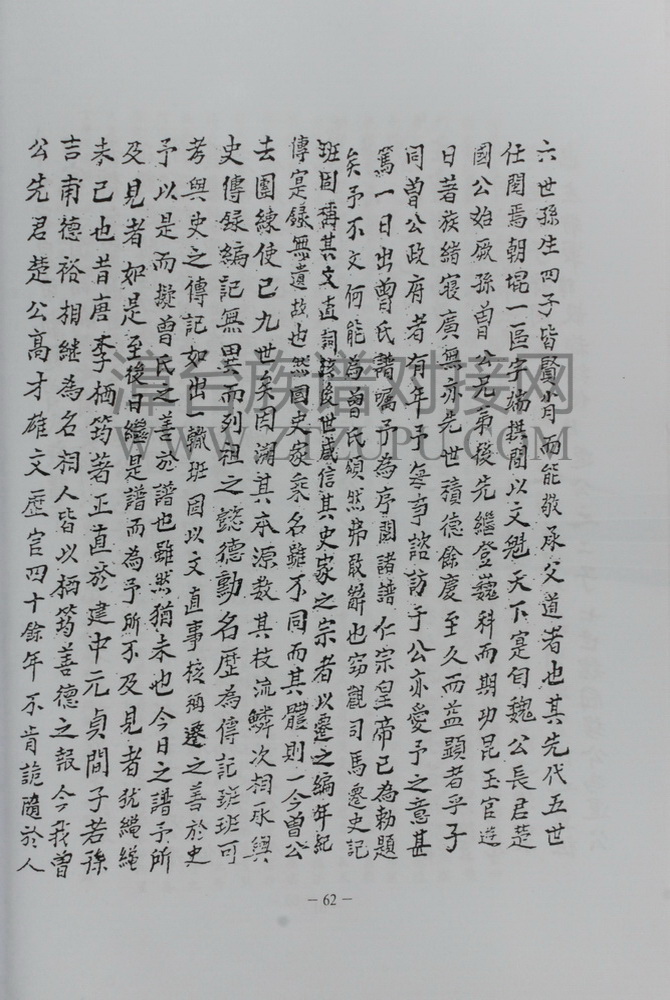 六世孫生四子皆賢肖而能敬承父道者也其先代五世
任閩焉朝堒一區字端拱間以文魁天下寔自魏公長君楚
國公始厥孫曾公兄弟後先繼登巍科而期功昆玉官遊
日著族緒寖廣無亦先世積德餘慶至久而益顯者乎子
同曾公政府者有年予每事諮訪于公亦愛予之意甚
篤一日出曾氏譜囑予為序閱諸譜仁宗皇帝已為勅題
矣予不文何能為曾氏頌然弗敢辭也竊觀司馬遷史記
班固稱其文直詞核後世咸信其史家之宗者以遷之編年紀
傳寔録無遺故也然國史家乘名雖不同而其體則一今曾公
去團練使已九世矣因溯其本源数其枝流鱗次相承與
史傳録編記無異而列祖之懿德勳名歷為傳記班班可
考與史之傳記如出一轍班固以文直事核稱遷之善於史
予以是而擬曾氏之善於譜也雖然猶未也今日之譜予所
及見者如是至後日繼是譜而為予所不及見者犹繩繩
未已也昔唐李栖筠著正直於建中元貞間子若孫
吉甫德裕相継為名相人皆以栖筠善德之報今我曾
公先君楚公高才雄文歷官四十餘年不肯詭隨於人
－62－
漳台族谱对接网
WWW.ZTZUPU.COM